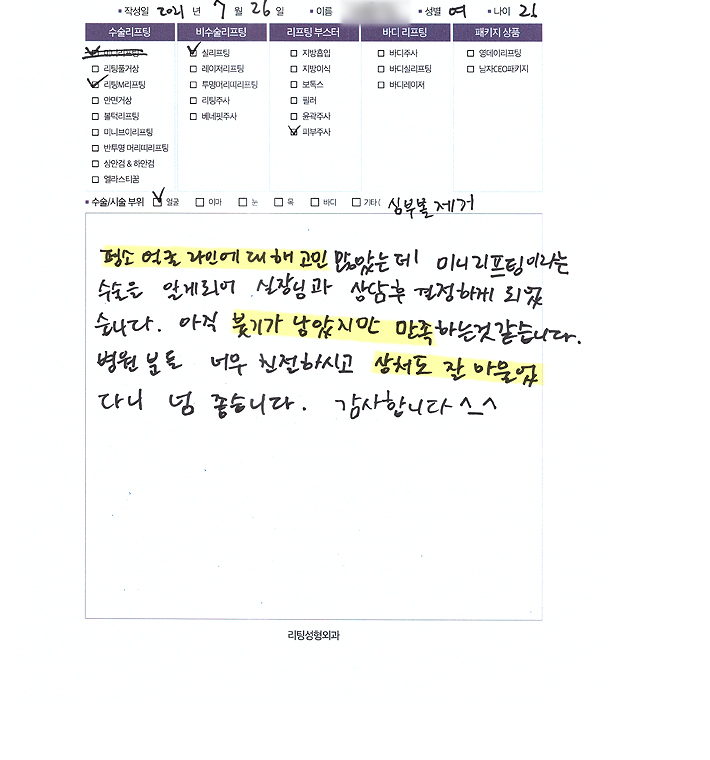 ▪ 작성일 2021 년 7 월 26 일 ▪ 이름 ▪ 성별 여 ▪ 나이
수술리프팅 비수술리프팅 리프팅 부스터 바디 리프팅 패키지 상품
미니리프팅 실리프팅 지방흡입 바디주사 영데이리프팅
리팅풀거상 레이저리프팅 지방이식 바디실리프팅 남자CEO패키지
리팅M리프팅 투명머리띠리프팅 보톡스 바디레이저
안면거상 리팅주사 필러
볼턱리프팅 베네핏주사 윤곽주사
미니브이리프팅 피부주사
반투명 머리띠리프팅
상안검 & 하안검
엘라스티꿈
▪ 수술/시술 부위 얼굴 이마 눈 목 바디 기타( 심부볼제거
평소 얼굴 라인에 대해 고민 많았는데 미니리프팅이라는
수술을 알게되어 실장님과 상담후 결정하게 되었
습니다. 아직 붓기가 남았지만 만족하는것같습니다.
병원 분들 너무 친절하시고 상처도 잘 아물었
다니 넘 좋습니다. 감사합니다 ^_^
리팅성형외과